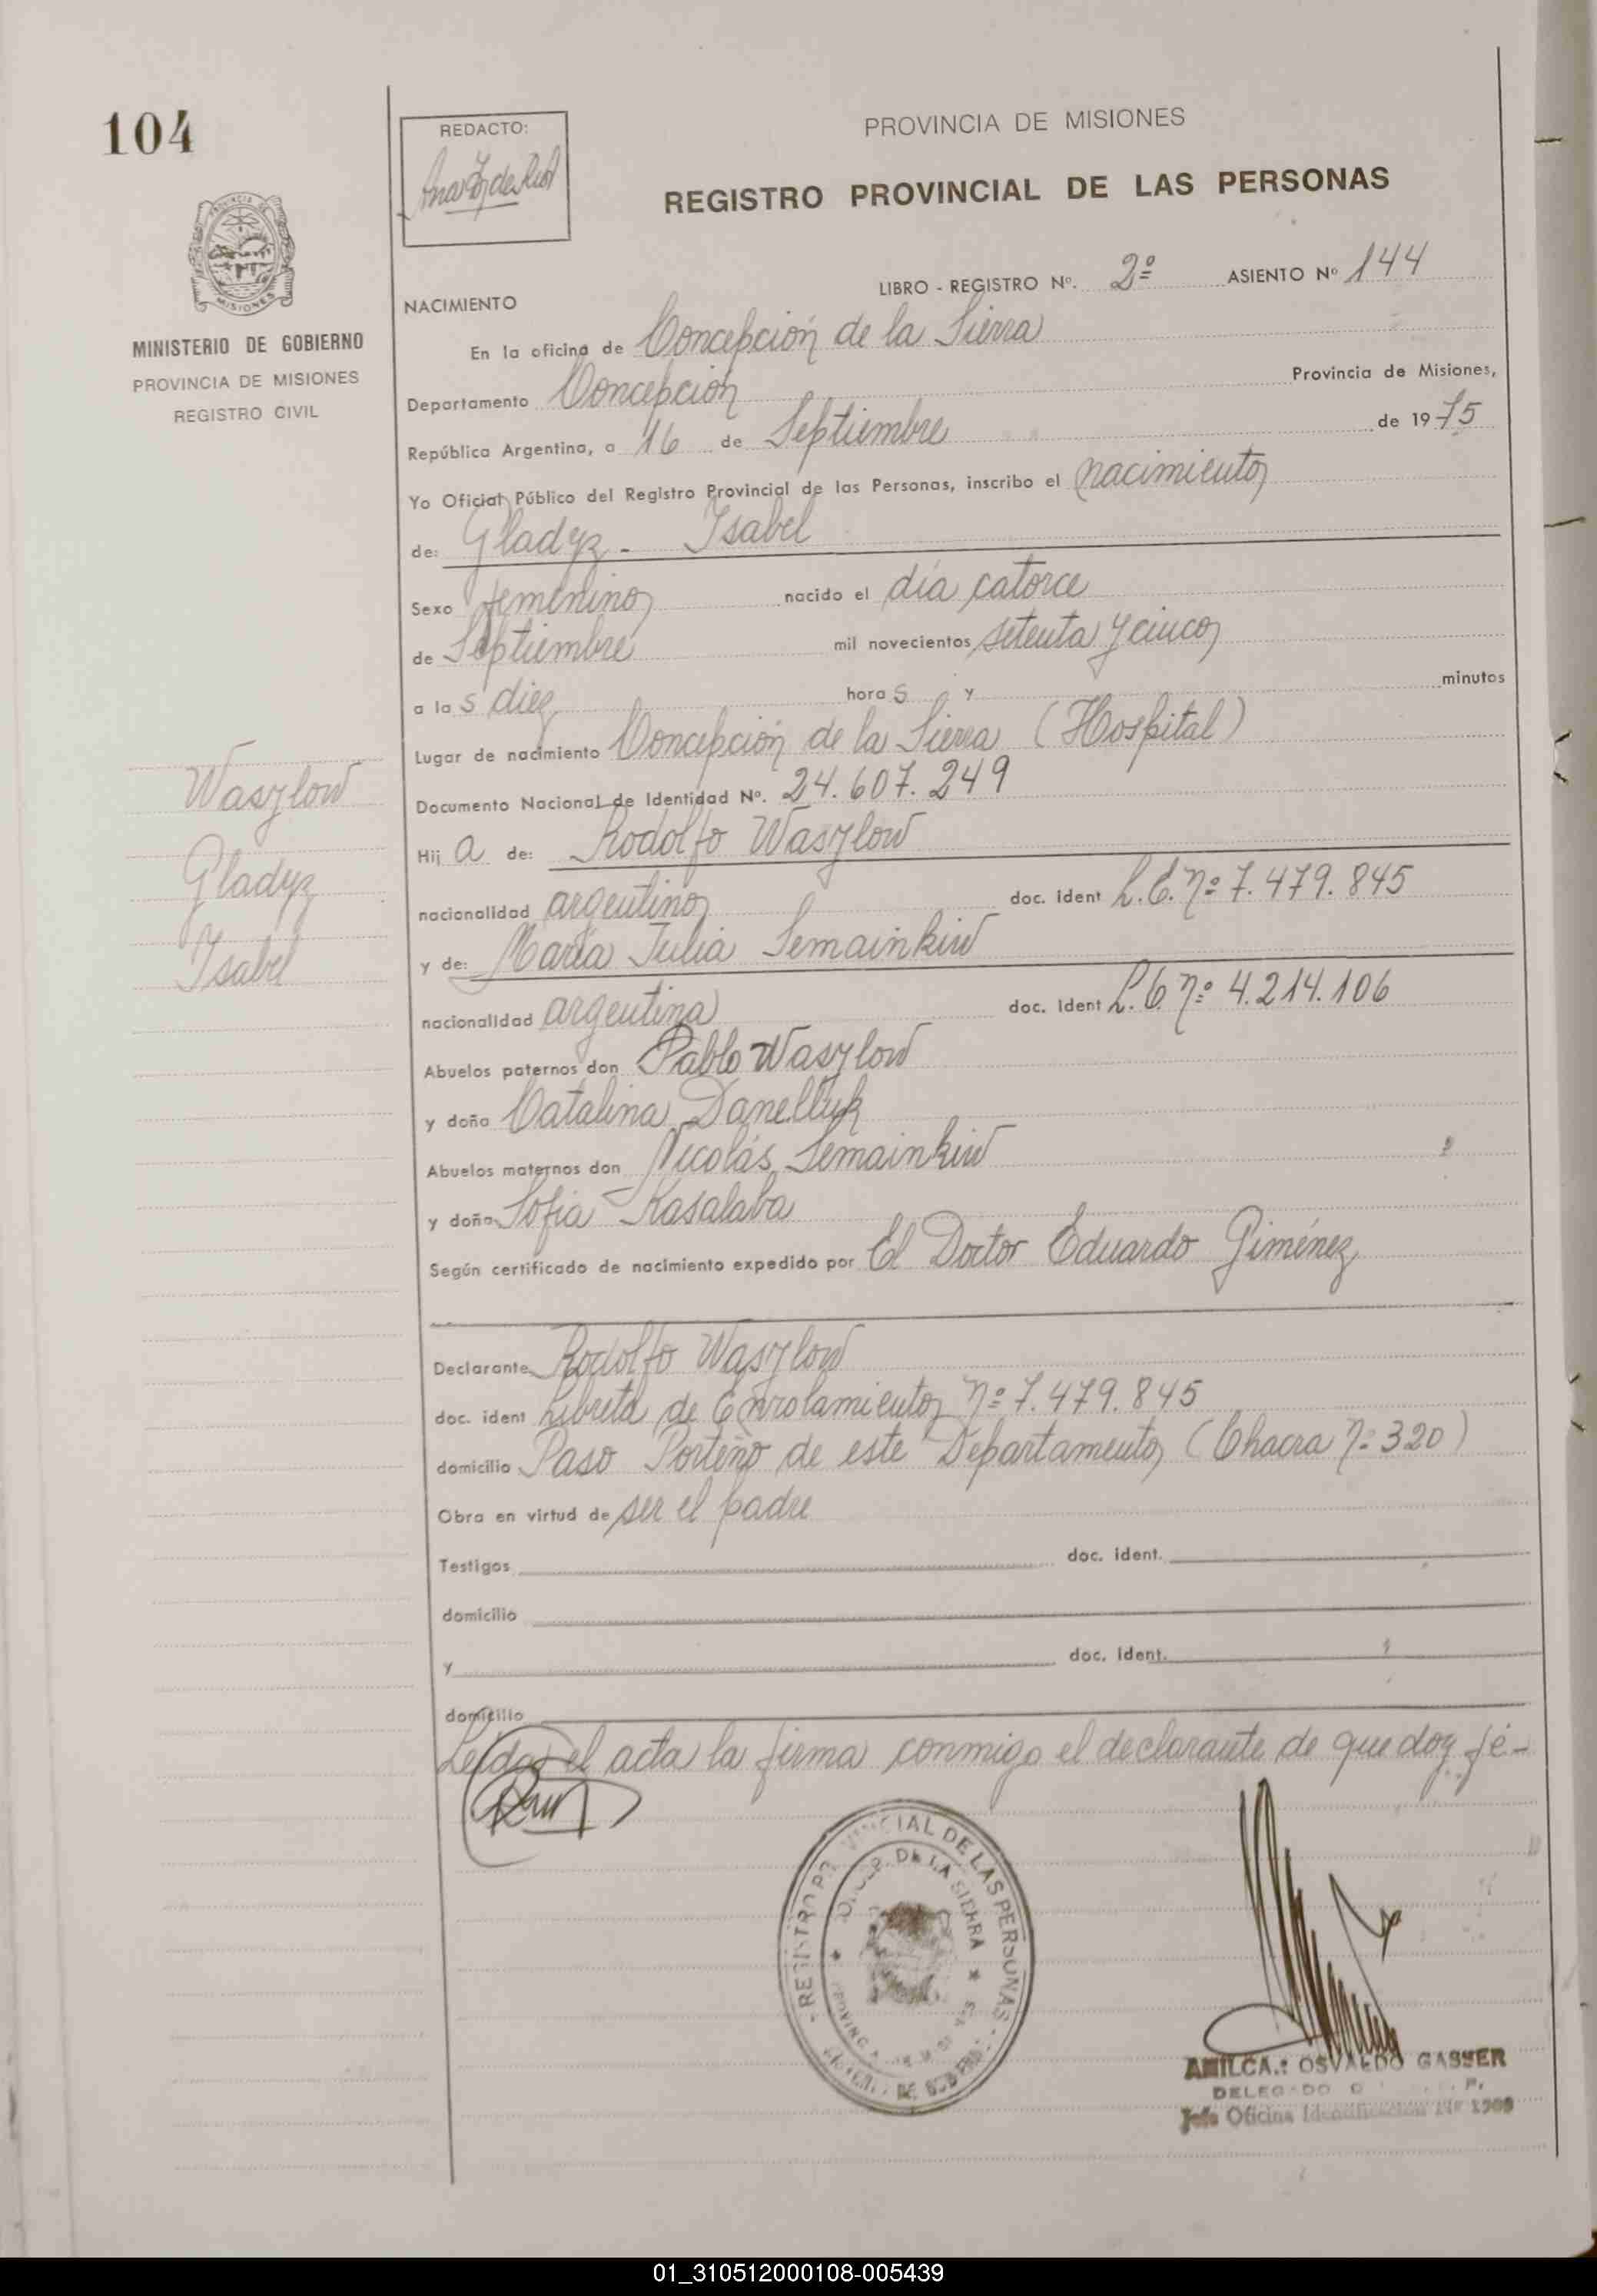 104
REDACTO:
PROVINCIA DE MISIONES
REGISTRO PROVINCIAL DE LAS PERSONAS
LIBRO - REGISTRO Nº. 2º ASIENTO Nº 144
NACIMIENTO
MISIONES
MINISTERIO DE GOBIERNO
PROVINCIA DE MISIONES
REGISTRO CIVIL
En la oficina de Concepción de la Sierra
Departamento Concepción Provincia de Misiones,
República Argentina, a 16 de Septiembre de 1975
Yo Oficial Público del Registro Provincial de las Personas, inscribo el nacimiento
de: Gladyz - Isabel
Sexo femenino nacido el día catorce
de Septiembre mil novecientos setenta y cinco
a las diez horas y minutos
Lugar de nacimiento Concepción de la Sierra (Hospital)
Documento Nacional de Identidad Nº. 24.607.249
Hija de: Rodolfo Wasylow
nacionalidad argentino doc. ident L.E. nº 7.479.845
y de: María Julia Semainkiw
nacionalidad argentina doc. ident L.C nº 4.214.106
Abuelos paternos don Pablo Wasylow
y doña Catalina Danelluk
Abuelos maternos don Nicolás Semainkiw
y doña Sofia Kasalaba
Según certificado de nacimiento expedido por El Doctor Eduardo Giménez
Wasylow
Gladyz
Isabel
Declarante Rodolfo Wasylow
doc. ident Libreta de Enrolamiento nº 7.479.845
domicilio Paso Porteño de este Departamento (Chacra nº 320)
Obra en virtud de ser el padre
Testigos doc. ident.
domicilio
y doc. ident.
domicilio
Leída el acta la firma conmigo el declarante de que doy fé-
REGISTRO PROVINCIAL DE LAS PERSONAS
CONCEP. DE LA SIERRA
AMILCAR OSVALDO GASSER
DELEGADO
Jefe Oficina Identificación Nº 1909
01_310512000108-005439